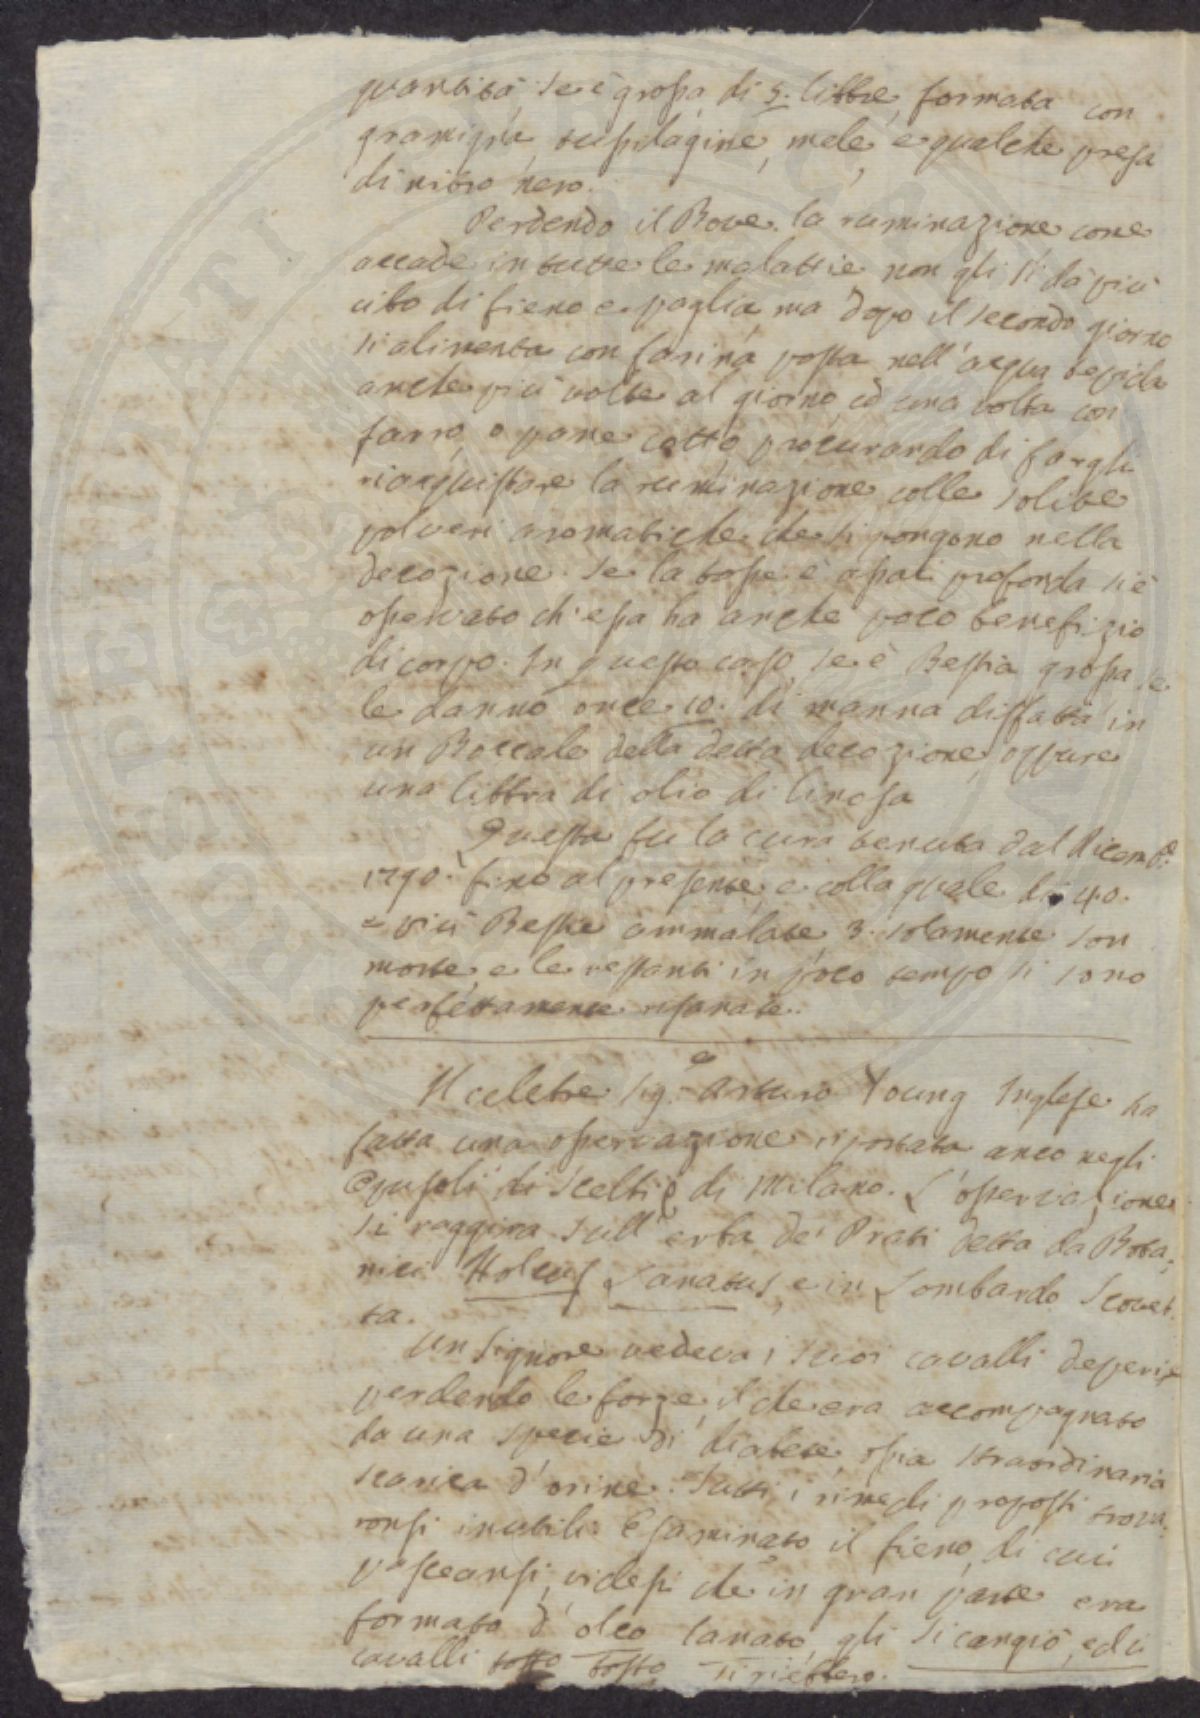 quantità, se è grossa di 5. libbre, formata con
gramigna, tussilagine, mele, e qualche presa
di nitro nero.
Perdendo il Bove la ruminazione come
accade in tutte le malattie non gli si dà più
cibo di fieno e paglia, ma dopo il secondo giorno
si alimenta con farina posta nell'acqua tepida
anche più volte al giorno, ed una volta con
farro, o pane cotto, procurando di fargli
riacquistare la ruminazione colle solite
polveri aromatiche che si pongono nella
decozione. Se la tosse è assai profonda si è
osservato ch'essa ha anche poco benefizio
di corpo. In questo caso, se è Bestia grossa se
le danno once 10. di manna disfatta in
un Boccale della detta decozione, oppure
una libbra di olio di linosa
Questa fu la cura tenuta dal Dicemb.e
1790. fino al presente, e colla quale di 40.
e più Bestie ammalate 3. solamente son
morte, e le restanti in poco tempo si sono
perfettamente risanate.
Il celebre Sig.e Arturo Young Inglese ha
fatta una osservazione riportata anco negli
Opusoli di Scelti di Milano. L'osservazione
si raggira sull'erba de' Prati detta da Bota-
nici Holcus Lanatus, e in Lombardo Scovet-
ta.
Un Signore vedeva i suoi cavalli deperire
perdendo le forze, il che era accompagnato
da una specie di diabete, ossia straordinaria
scarica d'orine. Tutti i rimedi proposti trova-
ronsi inutili. Esaminato il fieno, di cui
pasceansi, videsi che in gran parte era
formato d'olco lanato, gli si cangiò, ed i
cavalli tosto tosto si riebbero.
PROSPERITATI